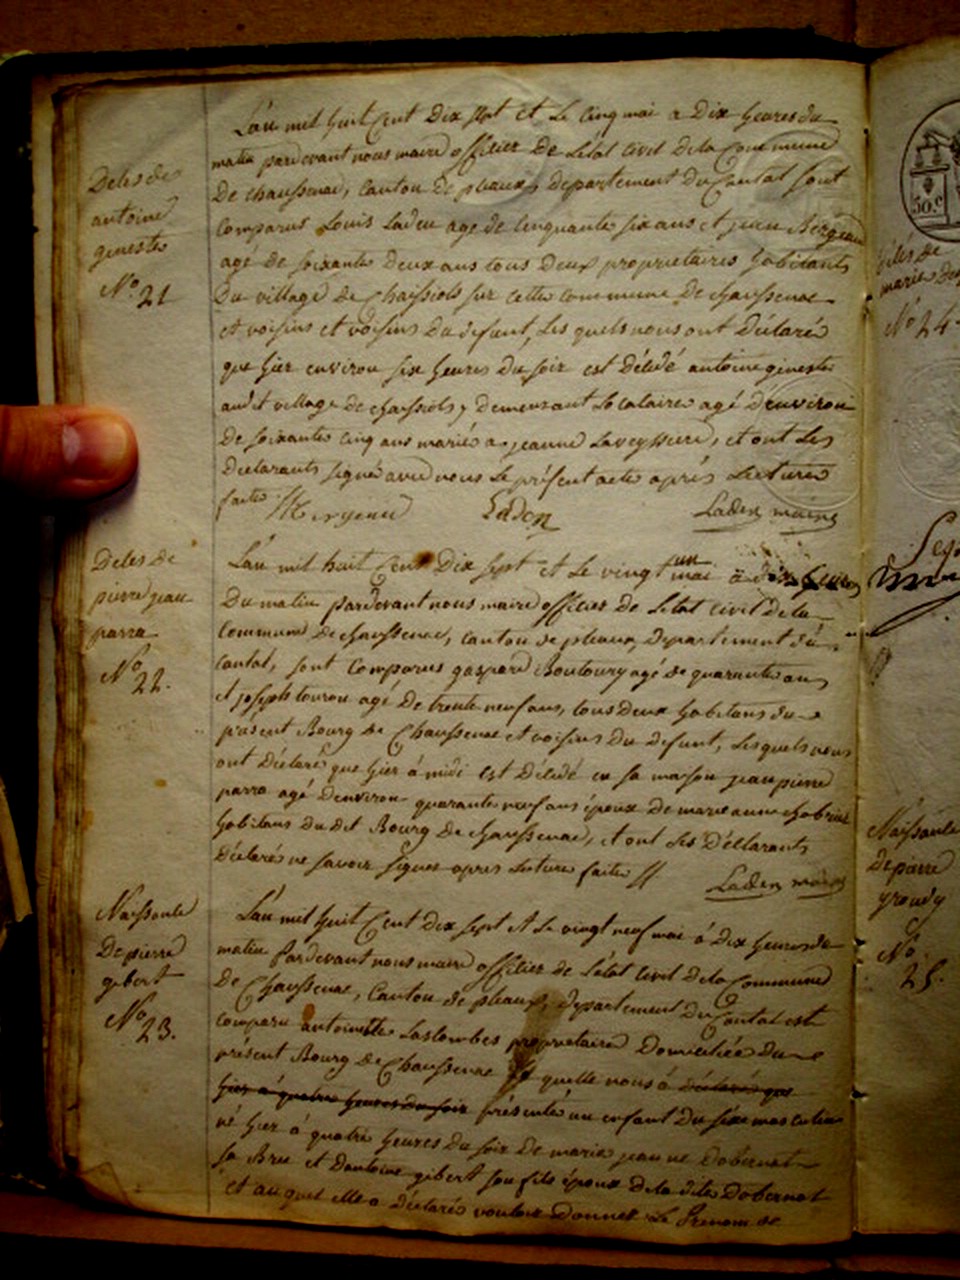 Deles de
antoine
genestes
No. 21
L'an mil huit Cent Dix sept et le cinq mai a Dix heures du
matin pardevant nous maire officier De L'état civil De la Commune
De chaussenac, Canton de pleaux, departement du Cantal sont
Comparus Louis Ladeu age de cinquante six ans et jean Bergeau
agé de soixante Deux ans tous Deux proprietaires habitants
Du village De Chaissiols sur cette commune De chaussenac
et voisins et voisins Du defunt, Les quels nous ont Déclaré
que hier environ six heures Du soir est Décédé antoine genestes
audit village de chaissiols, Demeurant Locataire agé D'environ
De soixante cinq ans marié a jeanne Laveyssiere, et ont Les
Declarants signé avec nous Le présent acte après Lecture
faite
Deles de
pierre jean
parra
No 22.
L'an mil huit Cent Dix sept et Le vingt un mai à dix heures
Du matin pardevant nous maire officier De Letat civil De la
Commune De chaussenac, Canton de pleaux, Departement du
Cantal, sont Comparus gaspard Boutoury agé de quarante ans
et joseph tourou agé De trente neuf ans, tous Deux habitans du
présent Bourg De Chaussenac et voisins Du Defunt, Lesquels nous
ont Déclaré que hier à midi est Décédé en sa maison jean pierre
parra agé D'environ quarante neuf ans époux De marie anne Chabrier
habitans Du Dit Bourg De chaussenac, et ont Les Déclarants
Déclaré ne savoir signer apres Lecture faite //
Naissance
De pierre
gibert
No 23.
L'an mil huit Cent Dix sept et Le vingt neuf mai à Dix heures du
matin Pardevant nous maire officier de L'état civil De la Commune
De Chaussenac, Canton de pleaux, departement Du Cantal est
comparu antoinette Lascombes propriétaire Domiciliée Du
présent Bourg de Chaussenac quelle nous à déclaré que
hier à quatre heures du soir présenté un enfant Du sexe masculin
né hier à quatre heures Du soir De marie jeanne Dabernat
sa Bru et D'antoine gibert son fils époux De la dite Dabernat
et auquel elle a Déclaré vouloir Donner Le Prenom de
50 c
No 24
Naissance
De pierre
No
25.